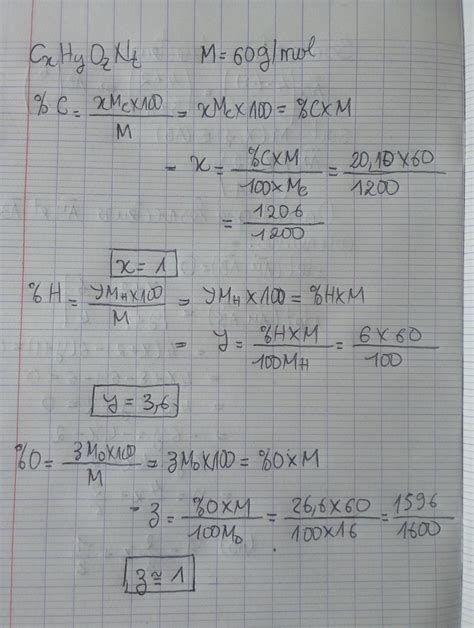 CxHyOzNt M = 60g/mol
%C = xMc×100 / M = xMc×100 = %C×M
- x = %C×M / 100×Mc = 20,10×60 / 1200
= 1206 / 1200
x = 1
%H = yMH×100 / M = yMH×100 = %H×M
= y = %H×M / 100MH = 6×60 / 100
y = 3,6
%O = zMo×100 / M = zMo×100 = %O×M
- z = %O×M / 100Mo = 26,6×60 / 100×16 = 1596 / 1600
z ≅ 1